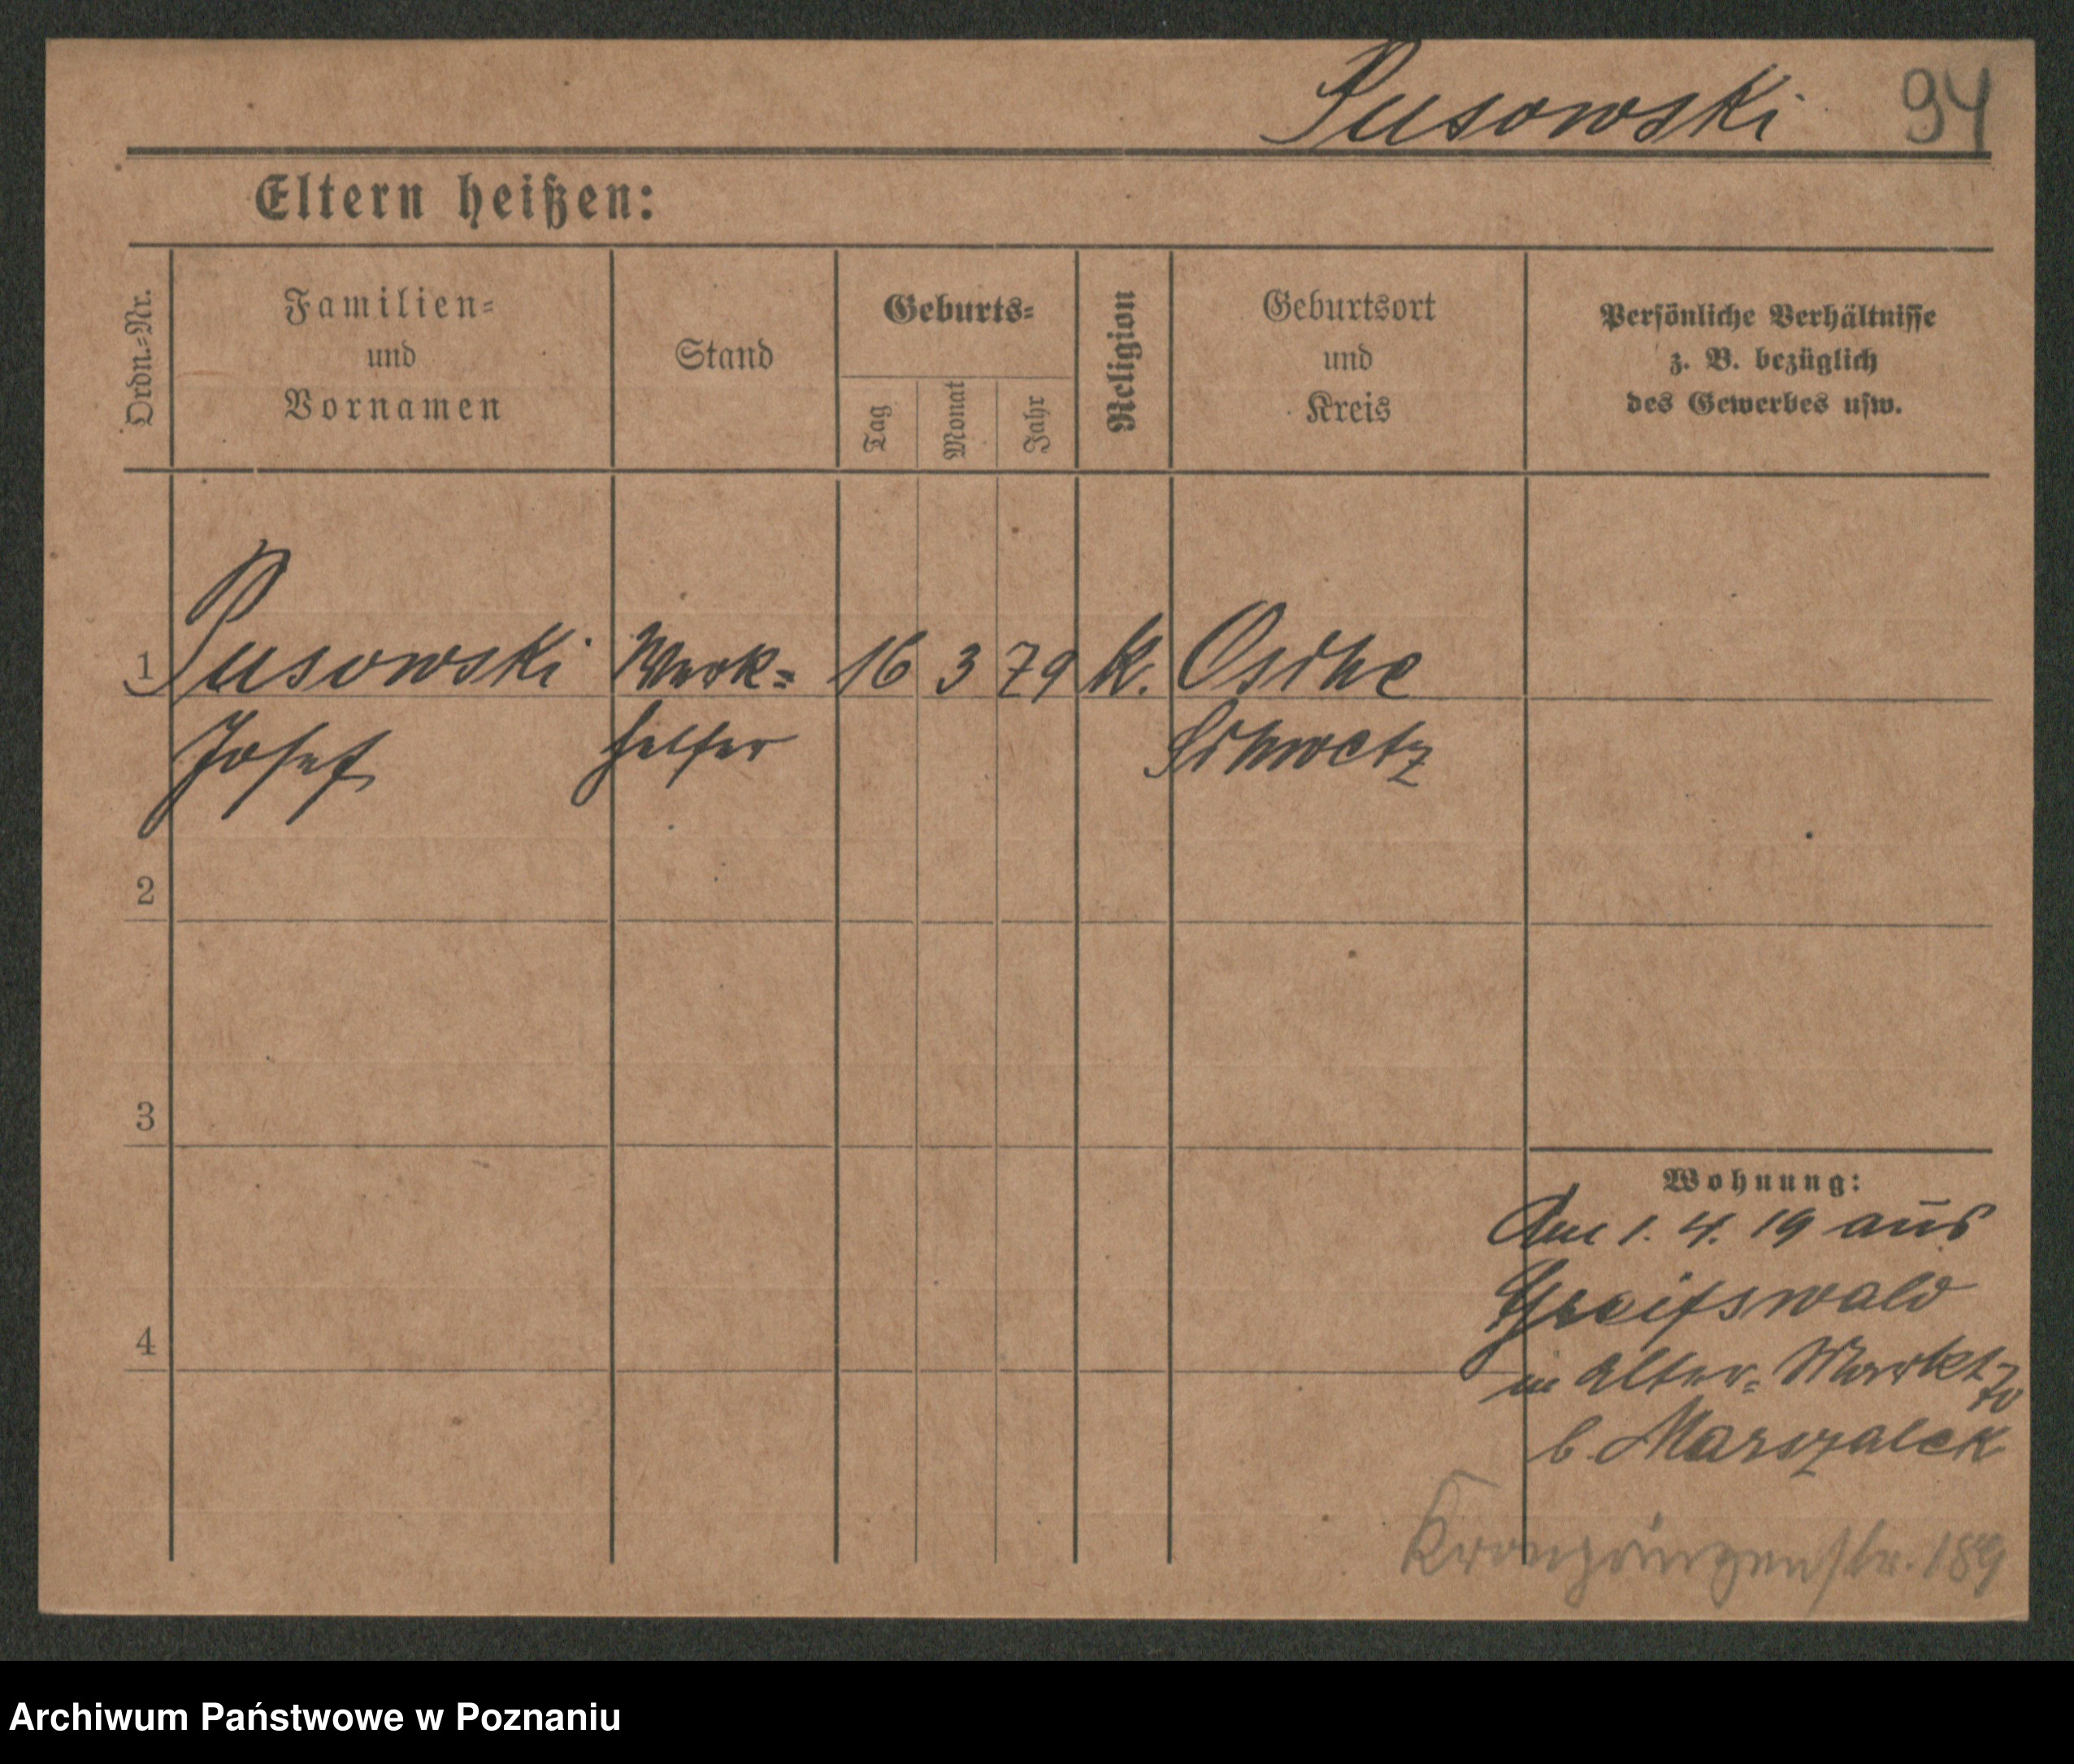 Pusowski 94
Eltern heißen:
Ordn.-Nr.
Familien-
und
Vornamen
Stand
Geburts-
Tag
Monat
Jahr
Religion
Geburtsort
und
Kreis
Persönliche Verhältnisse
z. B. bezüglich
des Gewerbes usw.
1 Pusowski Werk- 16 3 79 K. Osche
Josef helfer Schwetz
2
3
4
Wohnung:
Am 1. 4. 19 aus
Greifswald
in Alter-Markt
b. Marszalek
Kronprinzenstr. 189
Archiwum Państwowe w Poznaniu